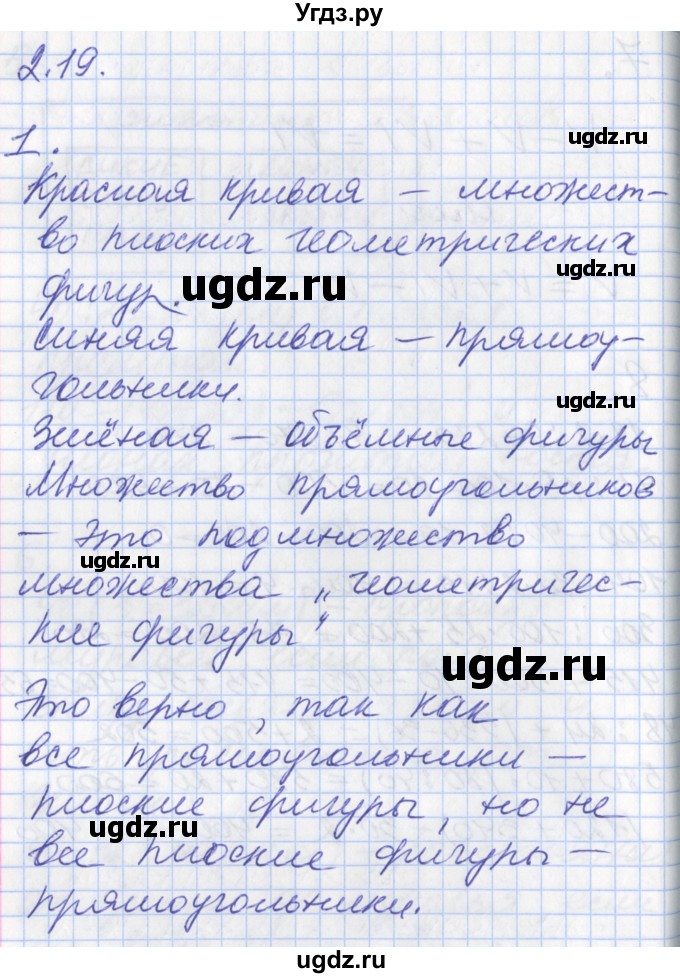 Угдз.ру
2.19.
ugdz.ru
1.
Красная кривая – множест-
ugdz.ru
во плоских геометрических
фигур.
ugdz.ru
Синяя кривая – прямоу-
гольники.
ugdz.ru
Зелёная – объёмные фигуры
Множество прямоугольников
– это подмножество
ugdz.ru
множества „геометричес-
кие фигуры"
ugdz.ru
Это верно, так как
все прямоугольники –
плоские фигуры, но не
ugdz.ru
все плоские фигуры –
прямоугольники.
ugdz.ru